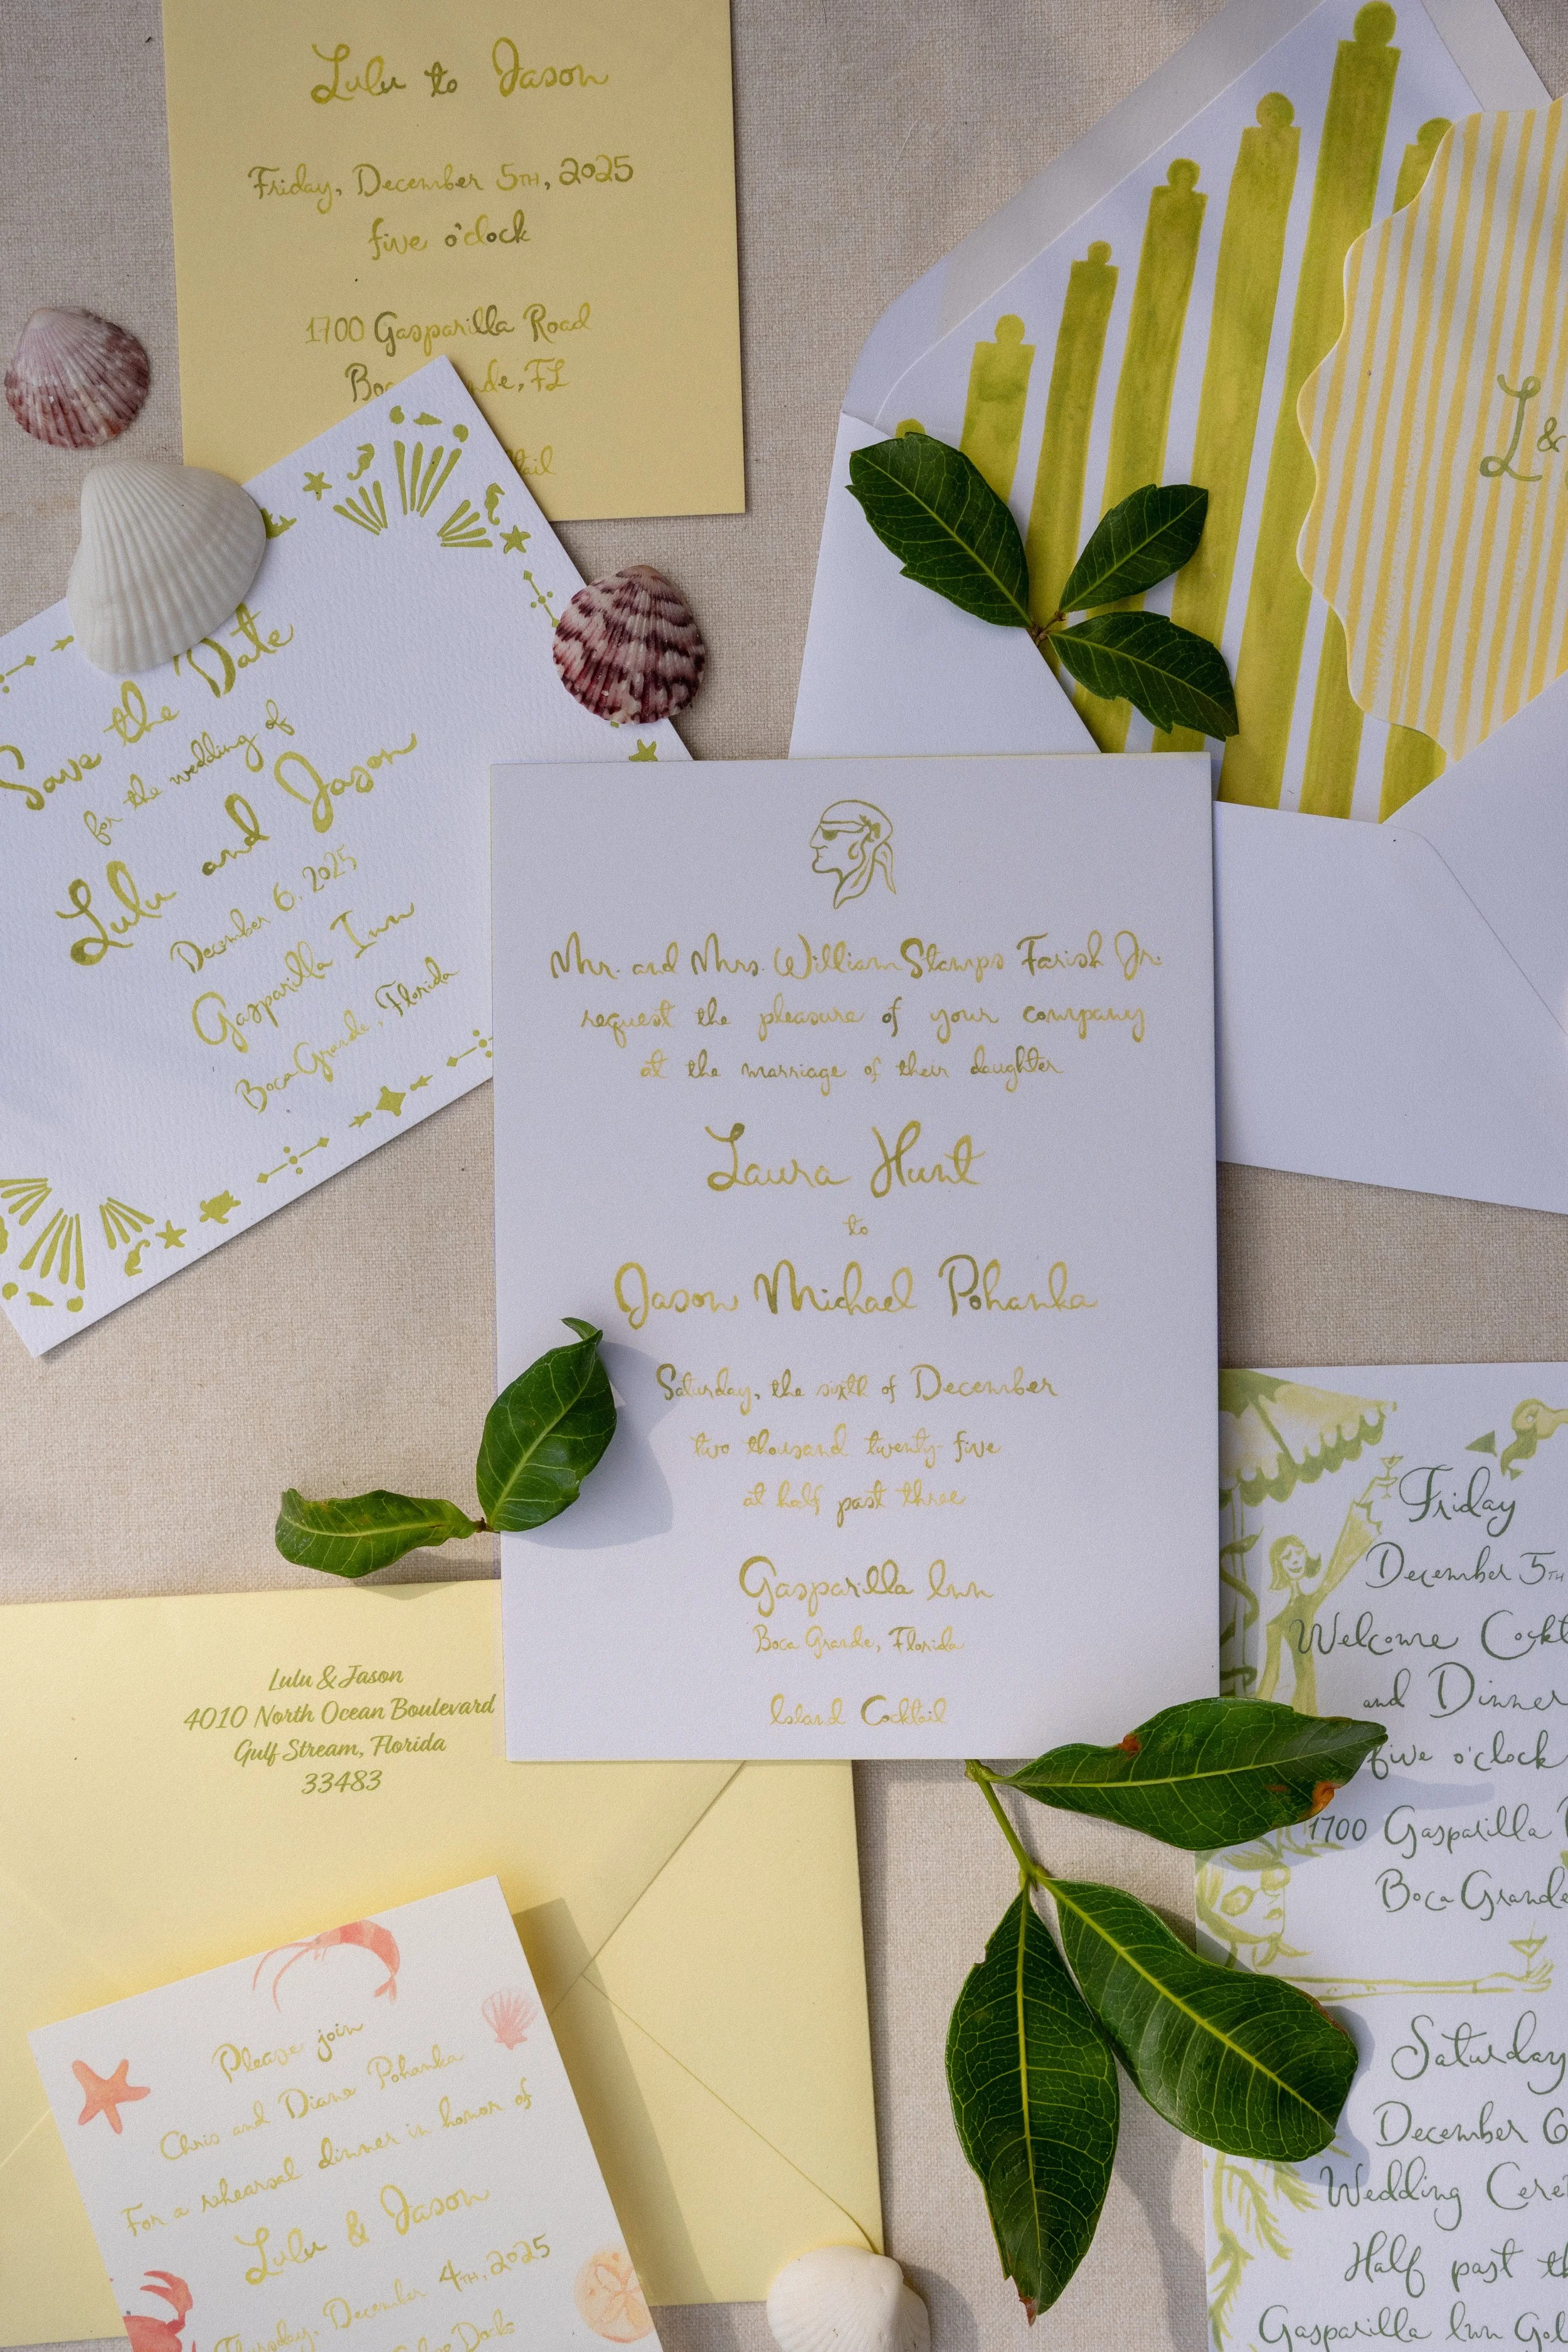 Lulu to Jason
Friday, December 5TH, 2025
five o'clock
1700 Gasparilla Road
FL
L &
Save the Date
for the wedding of
Lulu and Jason
December 6, 2025
Gasparilla Inn
Boca Grande, Florida
Mr. and Mrs. William Stamps Farish Jr.
request the pleasure of your company
at the marriage of their daughter
Laura Hunt
to
Jason Michael Pohanka
Saturday, the sixth of December
two thousand twenty five
at half past three
Gasparilla Inn
Boca Grande, Florida
Island Cocktail
Lulu & Jason
4010 North Ocean Boulevard
Gulf Stream, Florida
33483
Please join
Chris and Diana Pohanka
For a rehearsal dinner in honor of
Lulu & Jason
Thursday, December 4TH, 2025
Friday
December 5TH
Welcome
and Dinner
five o'clock
1700 Gasparilla
Boca Grande
Saturday
December 6
Wedding
Half past
Gasparilla Inn